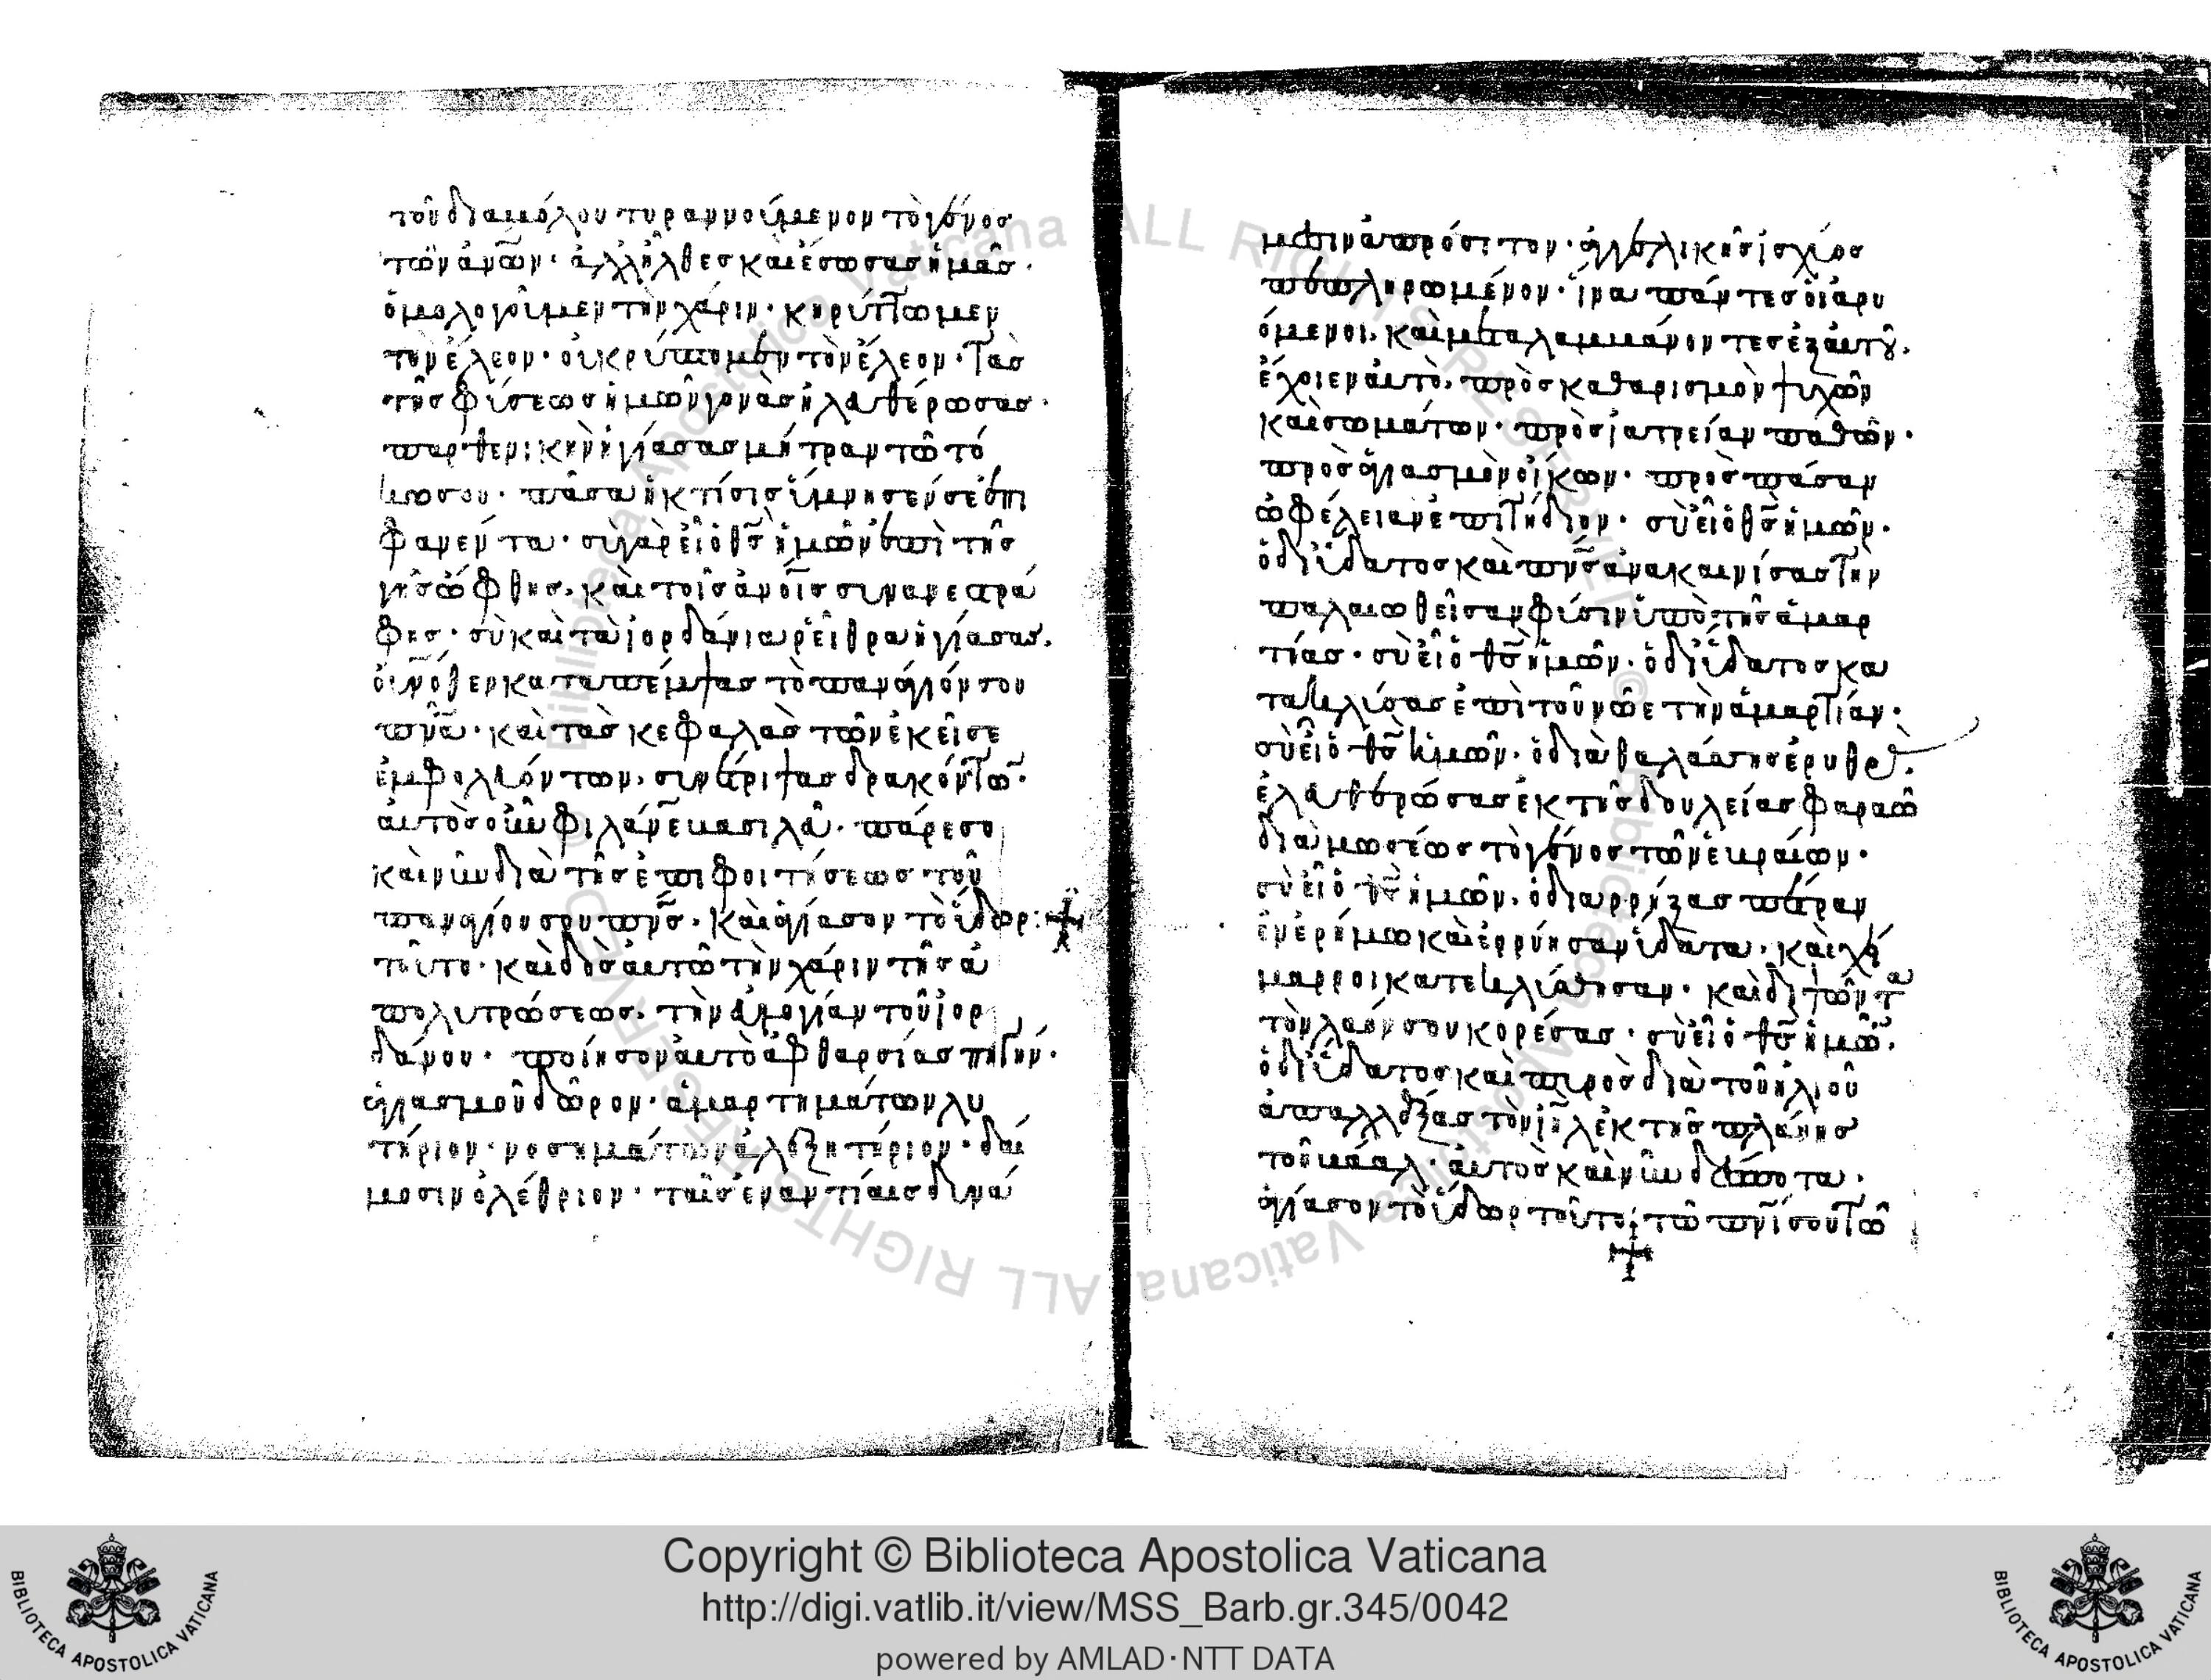 τοῦ διαβόλου τυραννούμενον τὸ γένος
τῶν ἀνῶν· ἀλλ ἦλθες καὶ ἔσωσας ἡμᾶς·
ὁμολογοῦμεν τὴν χάριν· κηρύττωμεν
τὸν ἔλεον· οὐ κρύπτομεν τὸν ἔλεον· τὰς
τῆς φύσεως ἡμῶν γονὰς ἠλευθέρωσας·
παρθενικὴν ἡγίασας μήτραν τῶ τό
κω σου· πᾶσα ἡ κτίσις ὕμνησεν σὲ ἐπι
φανέντα· σὺ γὰρ εἶ ὁ θς ἡμῶν ἐπὶ τῆς
γῆς ὤφθης· καὶ τοῖς ἀνοις συνανεστρά
φης· σὺ καὶ τὰ ἰορδάνια ῥεῖθρα ἡγίασας·
οὐνόθεν καταπέμψας τὸ πανάγιόν σου
πνα· καὶ τὰς κεφαλὰς τῶν ἐκεῖσε
ἐμφολευόντων· συνέτριψας δρακόντω·
αὐτὸς οὖν φιλάνε βασιλεῦ· πάρεσο
καὶ νῦν διὰ τῆς ἐπιφοιτήσεως τοῦ
παναγίου σου πνς· καὶ ἁγίασον τὸ ὕδωρ:
τοῦτο· καὶ δὸς αὐτῶ τὴν χάριν τῆς ἀ
πολυτρώσεως· τὴν εὐλογίαν τοῦ ἰορ
δάνου· ποίησον αὐτὸ ἀφθαρσίας πηγήν·
ἁγιασμοῦ δῶρον· ἁμαρτημάτων λυ
τήριον· νοσημάτων ἀλεξητήριον· δαί
μοσιν ὀλέθριον· ταῖς ἐναντίαις δυνά
μεσιν ἀπρόσιτον· ἀγγελικῆς ἰσχύος
πεπληρωμένον· ἵνα πάντες οἱ ἀρυ
όμενοι· καὶ μεταλαμβάνοντες ἐξ αὐτοῦ·
ἔχοιεν αὐτὸ· πρὸς καθαρισμὸν ψυχῶν
καὶ σωμάτων· πρὸς ἰατρείαν παθῶν·
πρὸς ἁγιασμὸν οἴκων· πρὸς πάσαν
ὠφέλειαν ἐπιτήδιον· σὺ εἶ ὁ θς ἡμῶν·
ὁ δι ὕδατος καὶ πνς ἀνακαινίσας τὴν
παλαιωθεῖσαν φύσιν ὑπὸ τῆς ἁμαρ
τίας· σὺ εἶ ὁ θς ἡμῶν· ὁ δι ὕδατος κα
τακλύσας ἐπὶ τοῦ νῶε τὴν ἁμαρτίαν·
σὺ εἶ ὁ θς ἡμῶν· ὁ διὰ θαλάσσης ἐρυθρᾶς
ἐλευθερώσας ἐκ τῆς δουλείας φαραὼ
διὰ μωσέως τὸ γένος τῶν ἑβραίων·
σὺ εἶ ὁ θς ἡμῶν· ὁ διαρρήξας πέτραν
ἐν ἐρήμω καὶ ἐρρύησαν ὕδατα· καὶ χεί
μαρροι κατεκλύσθησαν· καὶ διψῶντα
τὸν λαόν σου κορέσας· σὺ εἶ ὁ θς ἡμῶ·
ὁ δι ὕδατος καὶ πυρὸς διὰ τοῦ ἠλιοῦ
ἀπαλλάξας τὸν ιηλ ἐκ τῆς πλάνης
τοῦ βάαλ· αὐτὸς καὶ νῦν δέσποτα·
ἁγίασον τὸ ὕδωρ τοῦτο· τῶ πνι σου τῶ
Copyright © Biblioteca Apostolica Vaticana
http://digi.vatlib.it/view/MSS_Barb.gr.345/0042
powered by AMLAD·NTT DATA
BIBLIOTECA APOSTOLICA VATICANA
BIBLIOTECA APOSTOLICA VATICANA